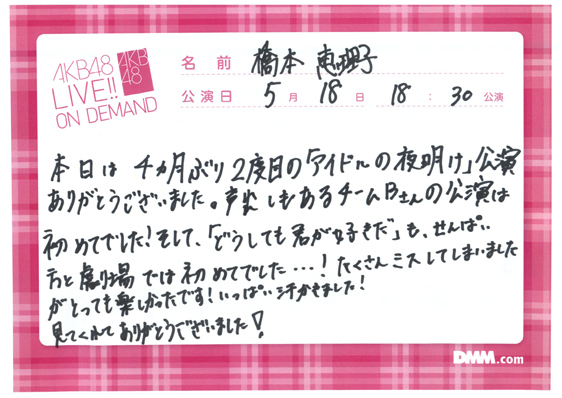 AKB48
LIVE!!
ON DEMAND
AKB
48
名前 橋本 恵理子
公演日 5月 18日 18:30公演
本日は 4カ月ぶり 2度目の「アイドルの夜明け」公演
ありがとうございました。声出しもあるチームBさんの公演は
初めてでした!そして、「どうしても君が好きだ」も、せんぱい
方と劇場では初めてでした…!たくさんミスしてしまいました
がとっても楽しかったです!いっぱい汗かきました!
見てくれてありがとうございました!
DMM.com